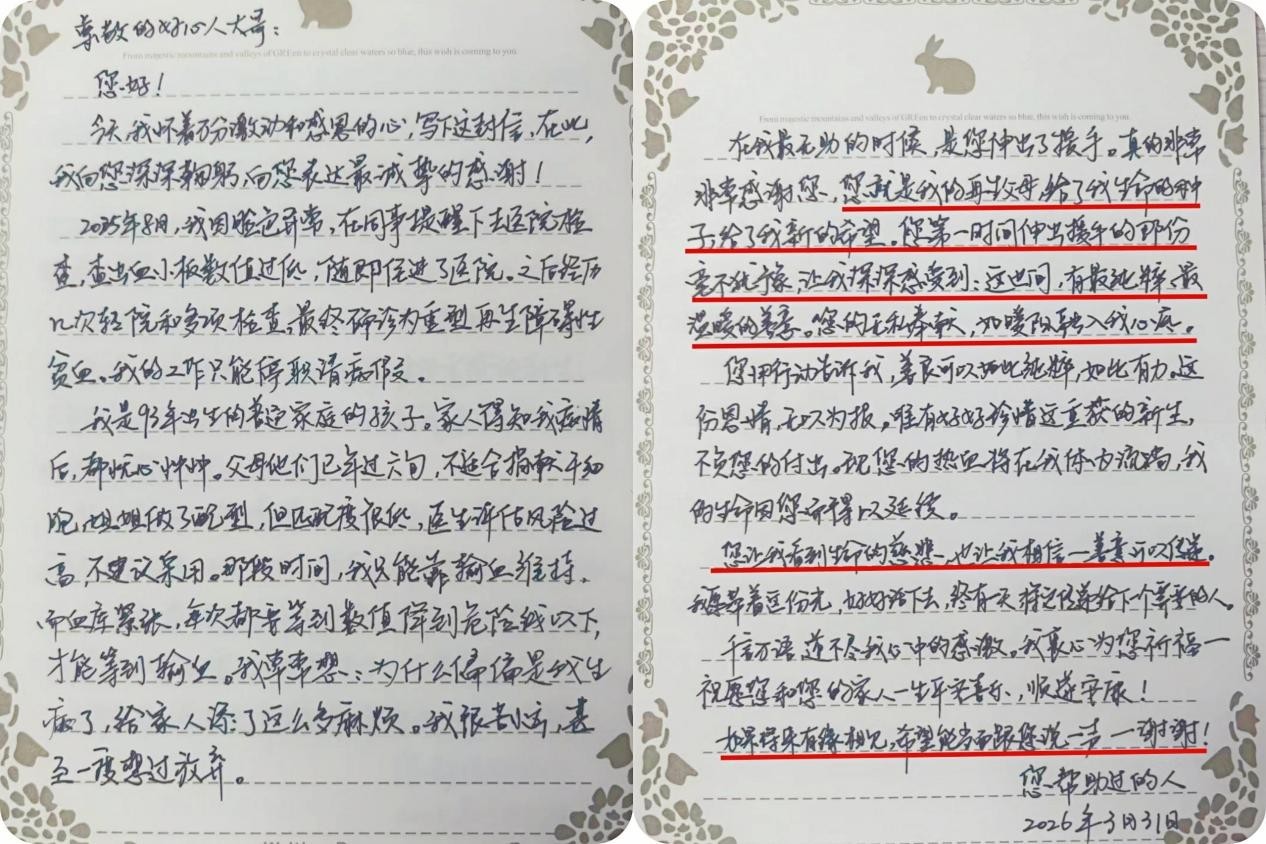 尊敬的好心人大哥：
From majestic mountains and valleys of GREen to crystal clear waters so blue, this wish is coming to you.
您好！
今天，我怀着万分激动和感恩的心，写下这封信，在此，
我向您深深鞠躬，向您表达最诚挚的感谢！
2025年8月，我因脸色异常，在同事提醒下去医院检
查，查出血小板数值过低，随即住进了医院。之后经历
几次转院和多项检查，最终确诊为重型再生障碍性
贫血。我的工作只能停职请病假了。
我是93年出生的普通家庭的孩子。家人得知我病情
后，都忧心忡忡。父母他们已年过六旬，不适合捐献干细
胞，姐姐做了配型，但匹配度很低，医生评估风险过
高，不建议采用。那段时间，我只能靠输血维持，
而血库紧张，每次都要等到数值降到危险线以下，
才能等到输血。我常常想：为什么偏偏是我生
病了，给家人添了这么多麻烦。我很苦恼，甚
至一度想过放弃。
From majestic mountains and valleys of GREen to crystal clear waters so blue, this wish is coming to you.
在我最无助的时候，是您伸出了援手。真的非常
非常感谢您，您就是我的再生父母，给了我生命的种
子，给了我新的希望。您第一时间伸出援手的那份
毫不犹豫，让我深深感受到：这世间，有最纯粹、最
温暖的善意。您的无私奉献，如暖阳融入我心底。
您用行动告诉我，善良可以如此纯粹，如此有力。这
份恩情，无以为报。唯有好好珍惜这重获的新生，
不负您的付出。现您的热血将在我体内流淌，我
的生命因您而得以延续。
您让我看到生命的慈悲，也让我相信一善意可以传递。
我愿带着这份光，好好活下去，终有一天将它传递给下个需要的人。
千言万语道不尽我心中的感激。我衷心为您祈福一
祝愿您和您的家人一生平安喜乐、顺遂安康！
如果将来有缘相见，希望能当面跟您说一声一谢谢！
您帮助过的人
2026年3月31日